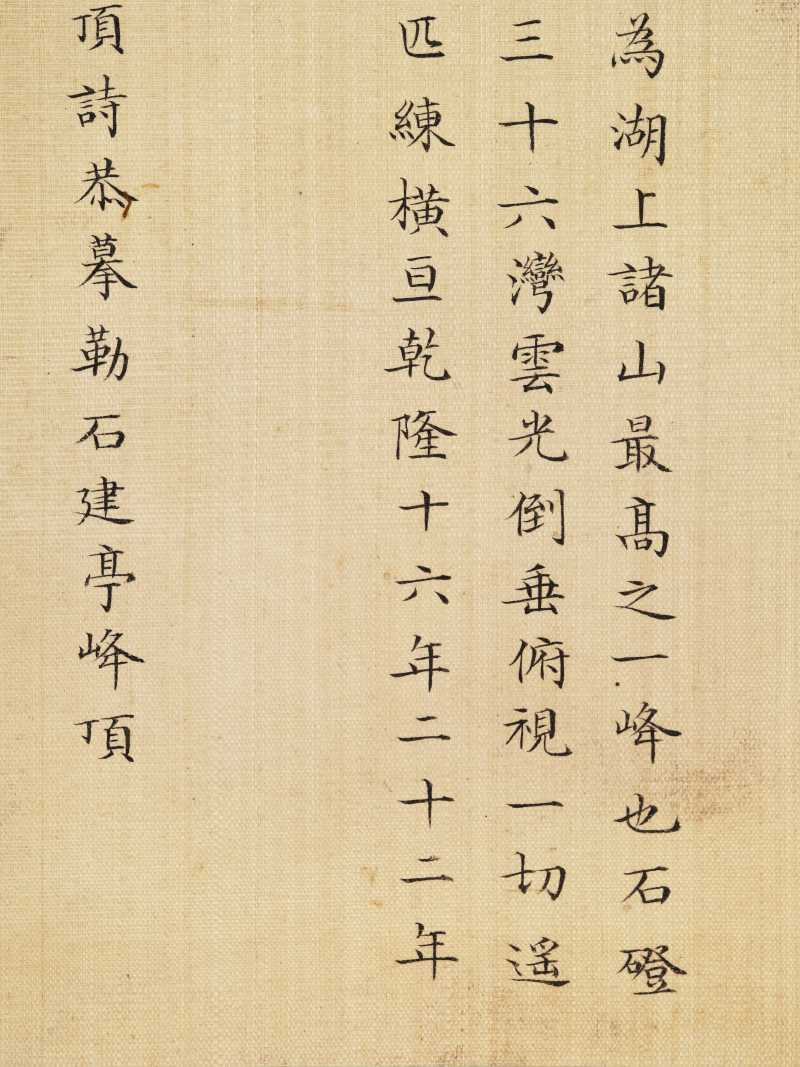 為湖上諸山最髙之一峰也石磴
三十六灣雲光倒垂俯視一切遥
匹練橫亘乾隆十六年二十二年
頂詩恭摹勒石建亭峰頂